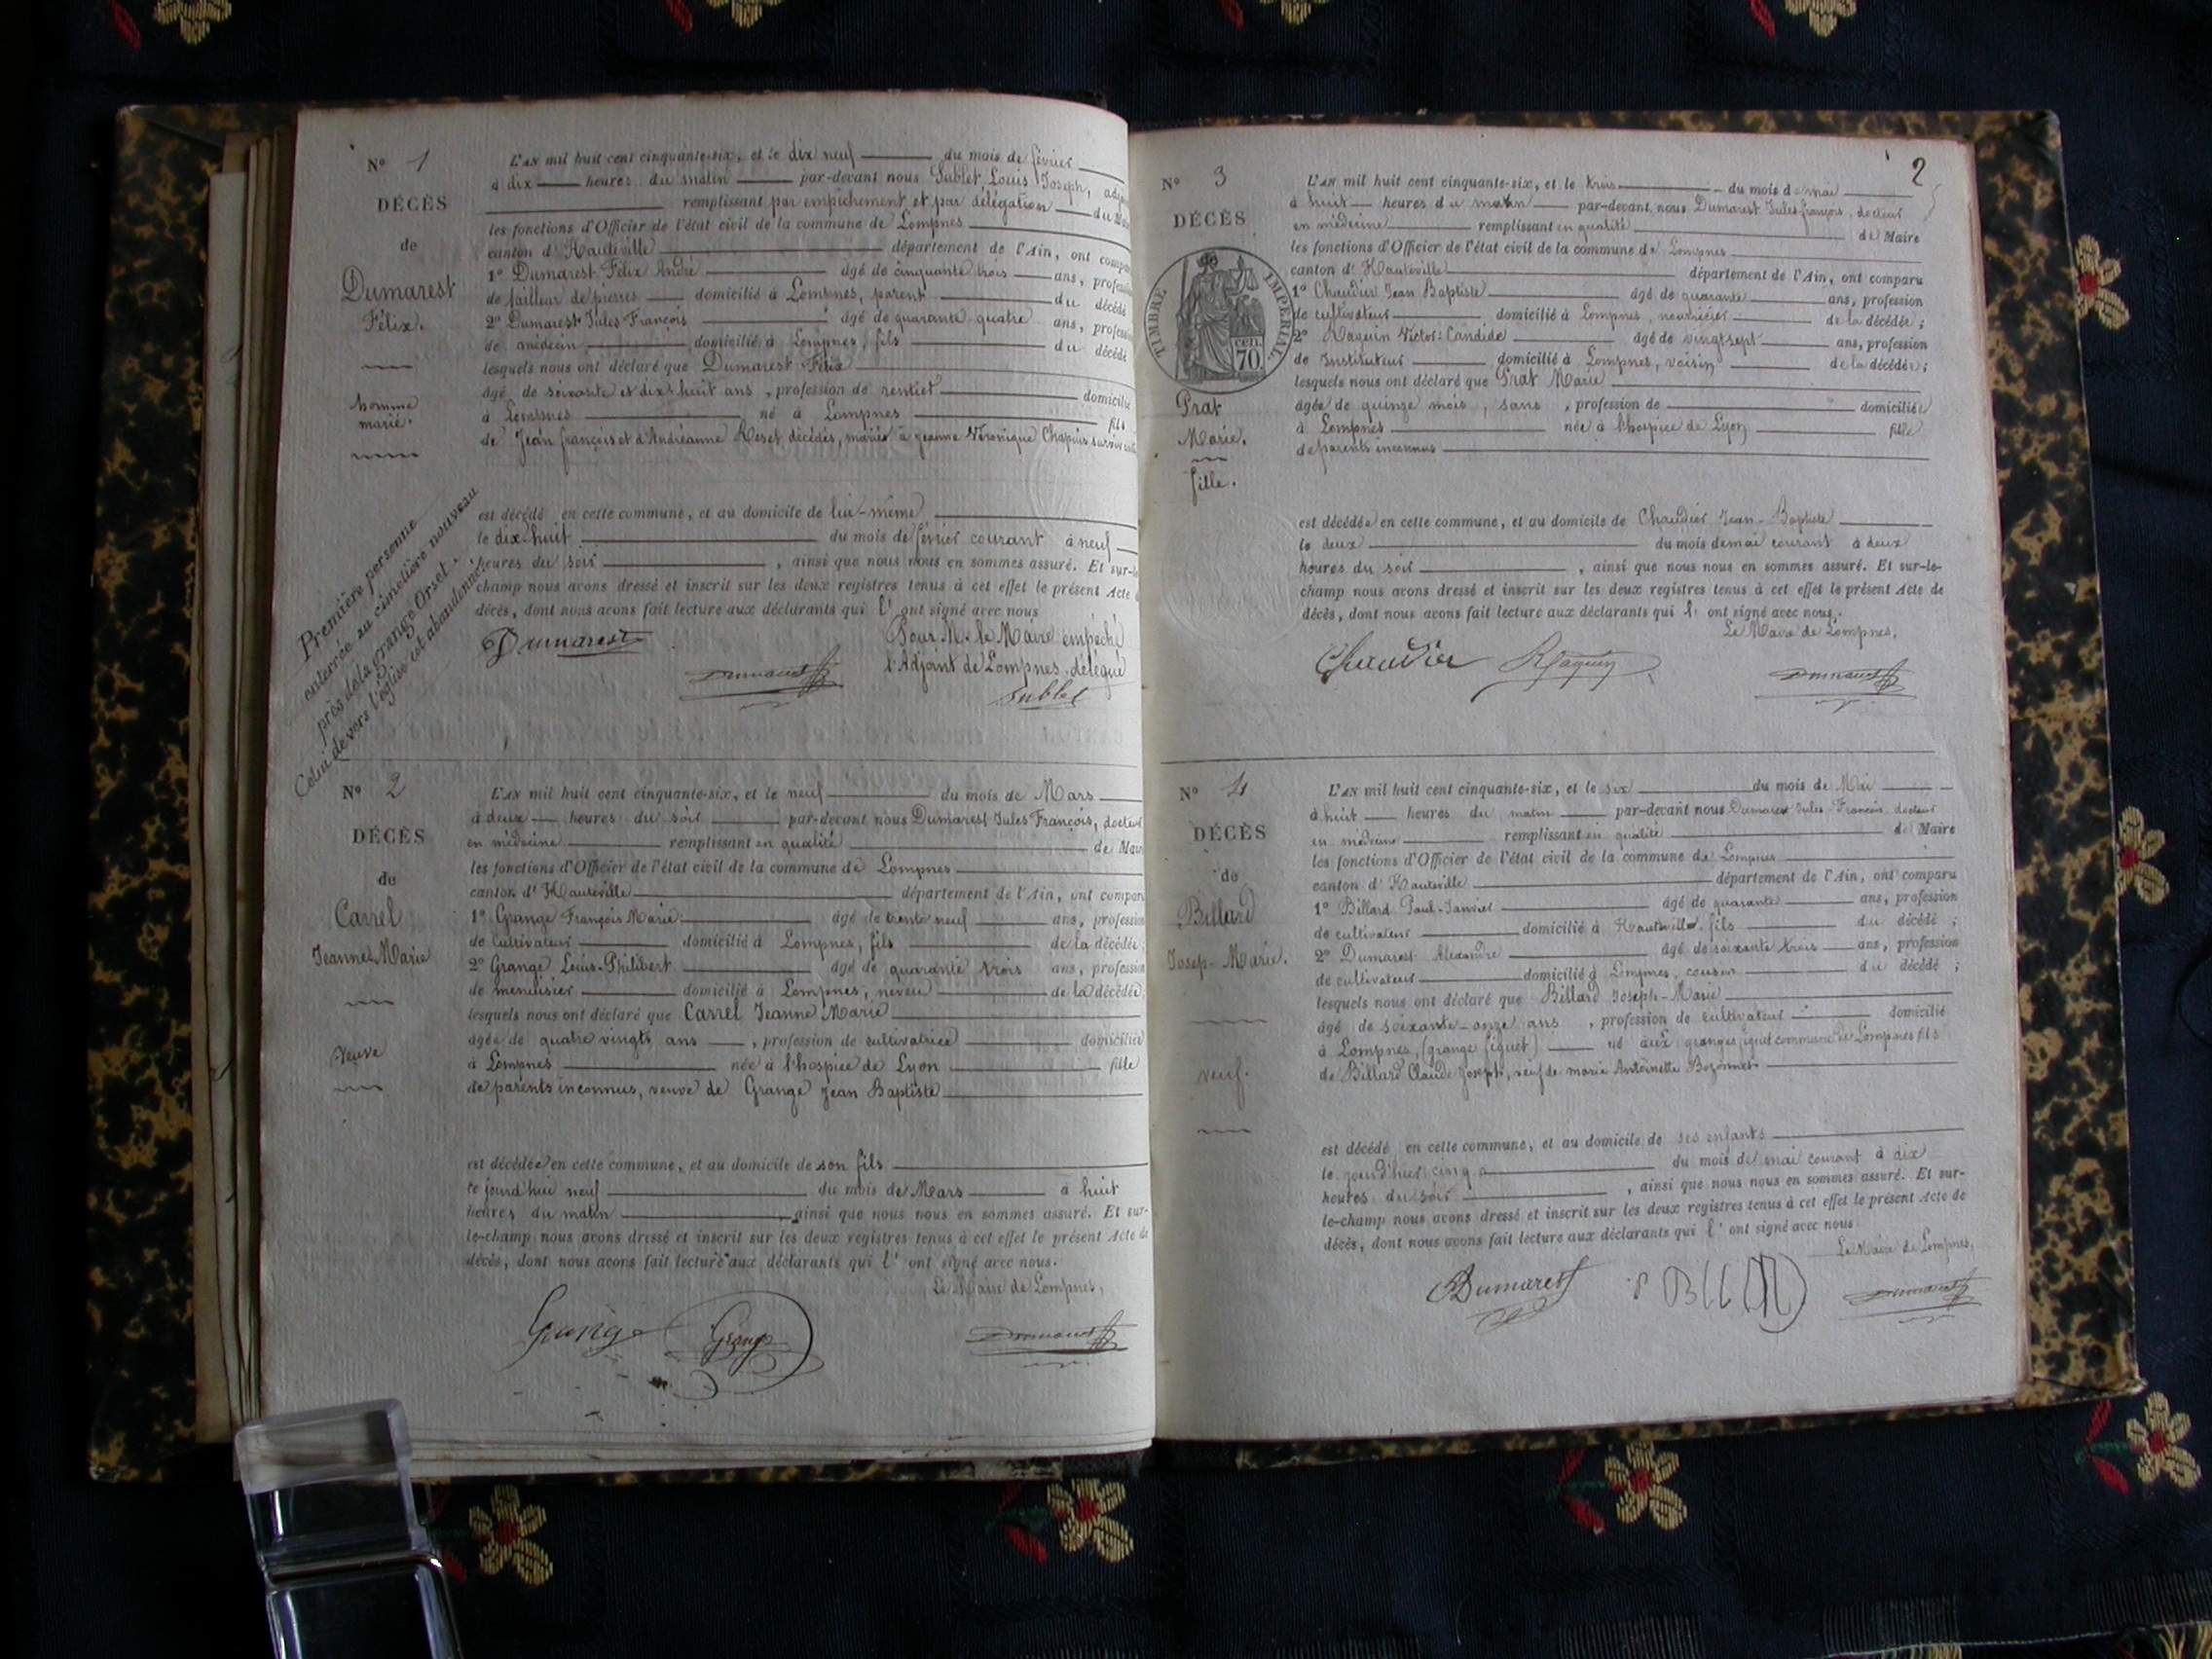 N° 1
DÉCÈS
de
Dumarest
Félix.
homme
marié.
Première personne
enterrée au cimetière nouveau
près de la grange Orset.
Celui de vers l'église est abandonné.
L'AN mil huit cent cinquante-six, et le dix neuf du mois de février
à dix heures du matin par-devant nous Sublet Louis Joseph, adjoint
remplissant par empêchement et par délégation du
les fonctions d'Officier de l'état civil de la commune de Lompnes
canton d'Hauteville département de l'Ain, ont comparu
1° Dumarest Félix André âgé de cinquante trois ans, profession
de tailleur de pierres domicilié à Lompnes, parent du décédé
2° Dumarest Jules François âgé de quarante quatre ans, profession
de médecin domicilié à Lompnes, fils du décédé
lesquels nous ont déclaré que Dumarest Félix
âgé de soixante et dix huit ans, profession de rentier domicilié
à Lompnes né à Lompnes fils
de Jean françois et d'Andréanne décédés, marié à jeanne Véronique Chapuis
est décédé en cette commune, et au domicile de lui-même
le dix-huit du mois de février courant à neuf
heures du soir, ainsi que nous nous en sommes assuré. Et sur-le-
champ nous avons dressé et inscrit sur les deux registres tenus à cet effet le présent Acte de
décès, dont nous avons fait lecture aux déclarants qui l'ont signé avec nous
Pour M. le Maire empêché
l'Adjoint de Lompnes, délégué
Dumarest Dumarest Sublet
N° 2
DÉCÈS
de
Carrel
Jeanne Marie
Veuve
L'AN mil huit cent cinquante-six, et le neuf du mois de Mars
à deux heures du soir par-devant nous Dumarest Jules François, docteur
en médecine remplissant en qualité de Maire
les fonctions d'Officier de l'état civil de la commune de Lompnes
canton d'Hauteville département de l'Ain, ont comparu
1° Grange François Marie âgé de trente neuf ans, profession
de Cultivateur domicilié à Lompnes, fils de la décédée
2° Grange Louis-Philibert âgé de quarante trois ans, profession
de menuisier domicilié à Lompnes, neveu de la décédée;
lesquels nous ont déclaré que Carrel Jeanne Marie
âgée de quatre vingts ans, profession de cultivatrice domiciliée
à Lompnes née à l'hospice de Lyon fille
de parents inconnus, veuve de Grange Jean Baptiste
est décédée en cette commune, et au domicile de son fils
ce jourd'hui neuf du mois de Mars à huit
heures du matin, ainsi que nous nous en sommes assuré. Et sur-
le-champ nous avons dressé et inscrit sur les deux registres tenus à cet effet le présent Acte de
décès, dont nous avons fait lecture aux déclarants qui l'ont signé avec nous.
Le Maire de Lompnes,
Grange Grange Dumarest
2
N° 3
DÉCÈS
TIMBRE IMPERIAL
CEN.
70
Prat
Marie.
fille.
L'AN mil huit cent cinquante-six, et le trois du mois de mai
à huit heures du matin par-devant nous Dumarest Jules françois, docteur
en médecine remplissant en qualité de Maire
les fonctions d'Officier de l'état civil de la commune de Lompnes
canton d'Hauteville département de l'Ain, ont comparu
1° Chaudier Jean Baptiste âgé de quarante ans, profession
de cultivateur domicilié à Lompnes, nourricier de la décédée;
2° Raguin Victor-Candide âgé de vingt sept ans, profession
de Instituteur domicilié à Lompnes, voisin de la décédée;
lesquels nous ont déclaré que Prat Marie
âgée de quinze mois, sans, profession de domiciliée
à Lompnes née à l'hospice de Lyon fille
de parents inconnus
est décédée en cette commune, et au domicile de Chaudier Jean-Baptiste
le deux du mois de mai courant à deux
heures du soir, ainsi que nous nous en sommes assuré. Et sur-le-
champ nous avons dressé et inscrit sur les deux registres tenus à cet effet le présent Acte de
décès, dont nous avons fait lecture aux déclarants qui l'ont signé avec nous.
Le Maire de Lompnes,
Chaudier Raguin Dumarest
N° 4
DÉCÈS
de
Billard
Josep-Marie.
veuf.
L'AN mil huit cent cinquante-six, et le six du mois de Mai
à huit heures du matin par-devant nous Dumarest Jules-François docteur
en médecine remplissant en qualité de Maire
les fonctions d'Officier de l'état civil de la commune de Lompnes
canton d'Hauteville département de l'Ain, ont comparu
1° Billard Paul-Janvier âgé de quarante ans, profession
de cultivateur domicilié à Hauteville, fils du décédé;
2° Dumarest Alexandre âgé de soixante trois ans, profession
de cultivateur domicilié à Lompnes, cousin du décédé;
lesquels nous ont déclaré que Billard Joseph-Marie
âgé de soixante-onze ans, profession de cultivateur domicilié
à Lompnes, (grange figuet) né aux granges figuet commune de Lompnes fils
de Billard Claude Joseph, veuf de marie Antoinette Bozonnet
est décédé en cette commune, et au domicile de ses enfants
le jourd'hier cinq du mois de mai courant à dix
heures du soir, ainsi que nous nous en sommes assuré. Et sur-
le-champ nous avons dressé et inscrit sur les deux registres tenus à cet effet le présent Acte de
décès, dont nous avons fait lecture aux déclarants qui l'ont signé avec nous.
Le Maire de Lompnes,
Dumarest Dumarest